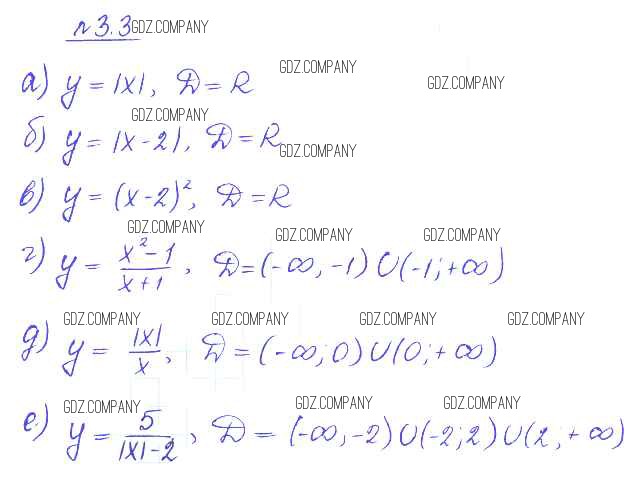 №3.3 GDZ.COMPANY
GDZ.COMPANY
GDZ.COMPANY
а) y = |x|, D = R
GDZ.COMPANY
б) y = |x - 2|, D = R
GDZ.COMPANY
в) y = (x - 2)², D = R
GDZ.COMPANY GDZ.COMPANY GDZ.COMPANY
г) y = (x² - 1)/(x + 1), D = (-∞, -1) ∪ (-1; +∞)
GDZ.COMPANY GDZ.COMPANY GDZ.COMPANY GDZ.COMPANY
д) y = |x|/x, D = (-∞; 0) ∪ (0; +∞)
GDZ.COMPANY GDZ.COMPANY GDZ.COMPANY
е) y = 5/(|x| - 2), D = (-∞, -2) ∪ (-2; 2) ∪ (2; +∞)